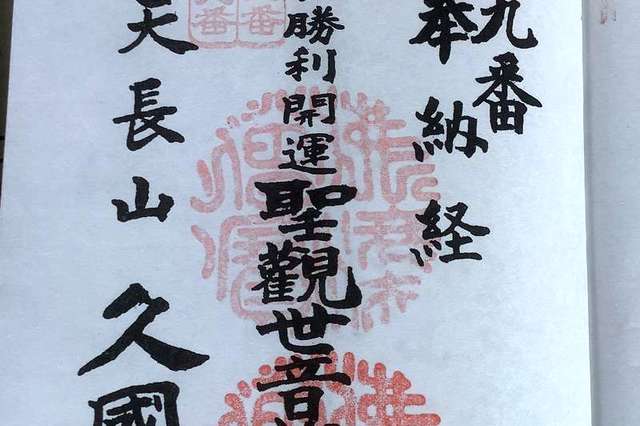 九番
奉納経
勝利開運
聖觀世音
天長山
久國